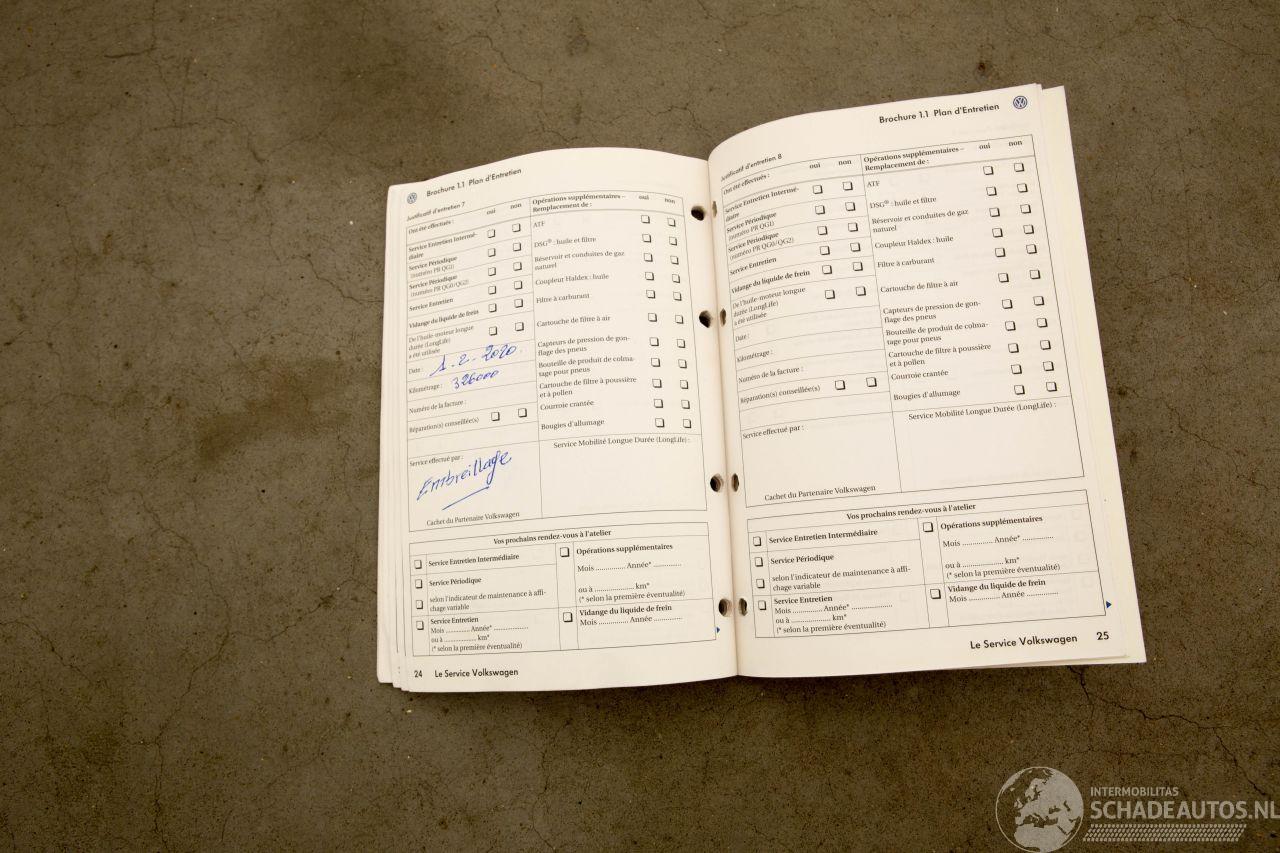 Brochure 1.1 Plan d'Entretien
Justificatif d'entretien 7
Ont été effectués :
oui
non
Service Entretien Intermé-
diaire
Service Périodique
(numéro PR QG1)
Service Périodique
(numéro PR QG0/QG2)
Service Entretien
Vidange du liquide de frein
De l'huile-moteur longue
durée (LongLife)
a été utilisée
Date : 1-2-2020.
Kilométrage : 326000
Numéro de la facture :
Réparation(s) conseillée(s)
Service effectué par :
Embreillage
Cachet du Partenaire Volkswagen
Opérations supplémentaires –
Remplacement de :
oui
non
ATF
DSG® : huile et filtre
Réservoir et conduites de gaz
naturel
Coupleur Haldex : huile
Filtre à carburant
Cartouche de filtre à air
Capteurs de pression de gon-
flage des pneus
Bouteille de produit de colma-
tage pour pneus
Cartouche de filtre à poussière
et à pollen
Courroie crantée
Bougies d'allumage
Service Mobilité Longue Durée (LongLife) :
Vos prochains rendez-vous à l'atelier
Service Entretien Intermédiaire
Service Périodique
selon l'indicateur de maintenance à affi-
chage variable
Service Entretien
Mois ............ Année* ..................
ou à ................ km*
(* selon la première éventualité)
Opérations supplémentaires
Mois .............. Année* ..............
ou à .................... km*
(* selon la première éventualité)
Vidange du liquide de frein
Mois .............. Année ..............
24 Le Service Volkswagen
Brochure 1.1 Plan d'Entretien
Justificatif d'entretien 8
Ont été effectués :
oui
non
Service Entretien Intermé-
diaire
Service Périodique
(numéro PR QG1)
Service Périodique
(numéro PR QG0/QG2)
Service Entretien
Vidange du liquide de frein
De l'huile-moteur longue
durée (LongLife)
a été utilisée
Date :
Kilométrage :
Numéro de la facture :
Réparation(s) conseillée(s)
Service effectué par :
Cachet du Partenaire Volkswagen
Opérations supplémentaires –
Remplacement de :
oui
non
ATF
DSG® : huile et filtre
Réservoir et conduites de gaz
naturel
Coupleur Haldex : huile
Filtre à carburant
Cartouche de filtre à air
Capteurs de pression de gon-
flage des pneus
Bouteille de produit de colma-
tage pour pneus
Cartouche de filtre à poussière
et à pollen
Courroie crantée
Bougies d'allumage
Service Mobilité Longue Durée (LongLife) :
Vos prochains rendez-vous à l'atelier
Service Entretien Intermédiaire
Service Périodique
selon l'indicateur de maintenance à affi-
chage variable
Service Entretien
Mois .............. Année* ..................
ou à .................. km*
(* selon la première éventualité)
Opérations supplémentaires
Mois .............. Année* ..............
ou à .................... km*
(* selon la première éventualité)
Vidange du liquide de frein
Mois .............. Année ..............
Le Service Volkswagen 25
INTERMOBILITAS
SCHADEAUTOS.NL